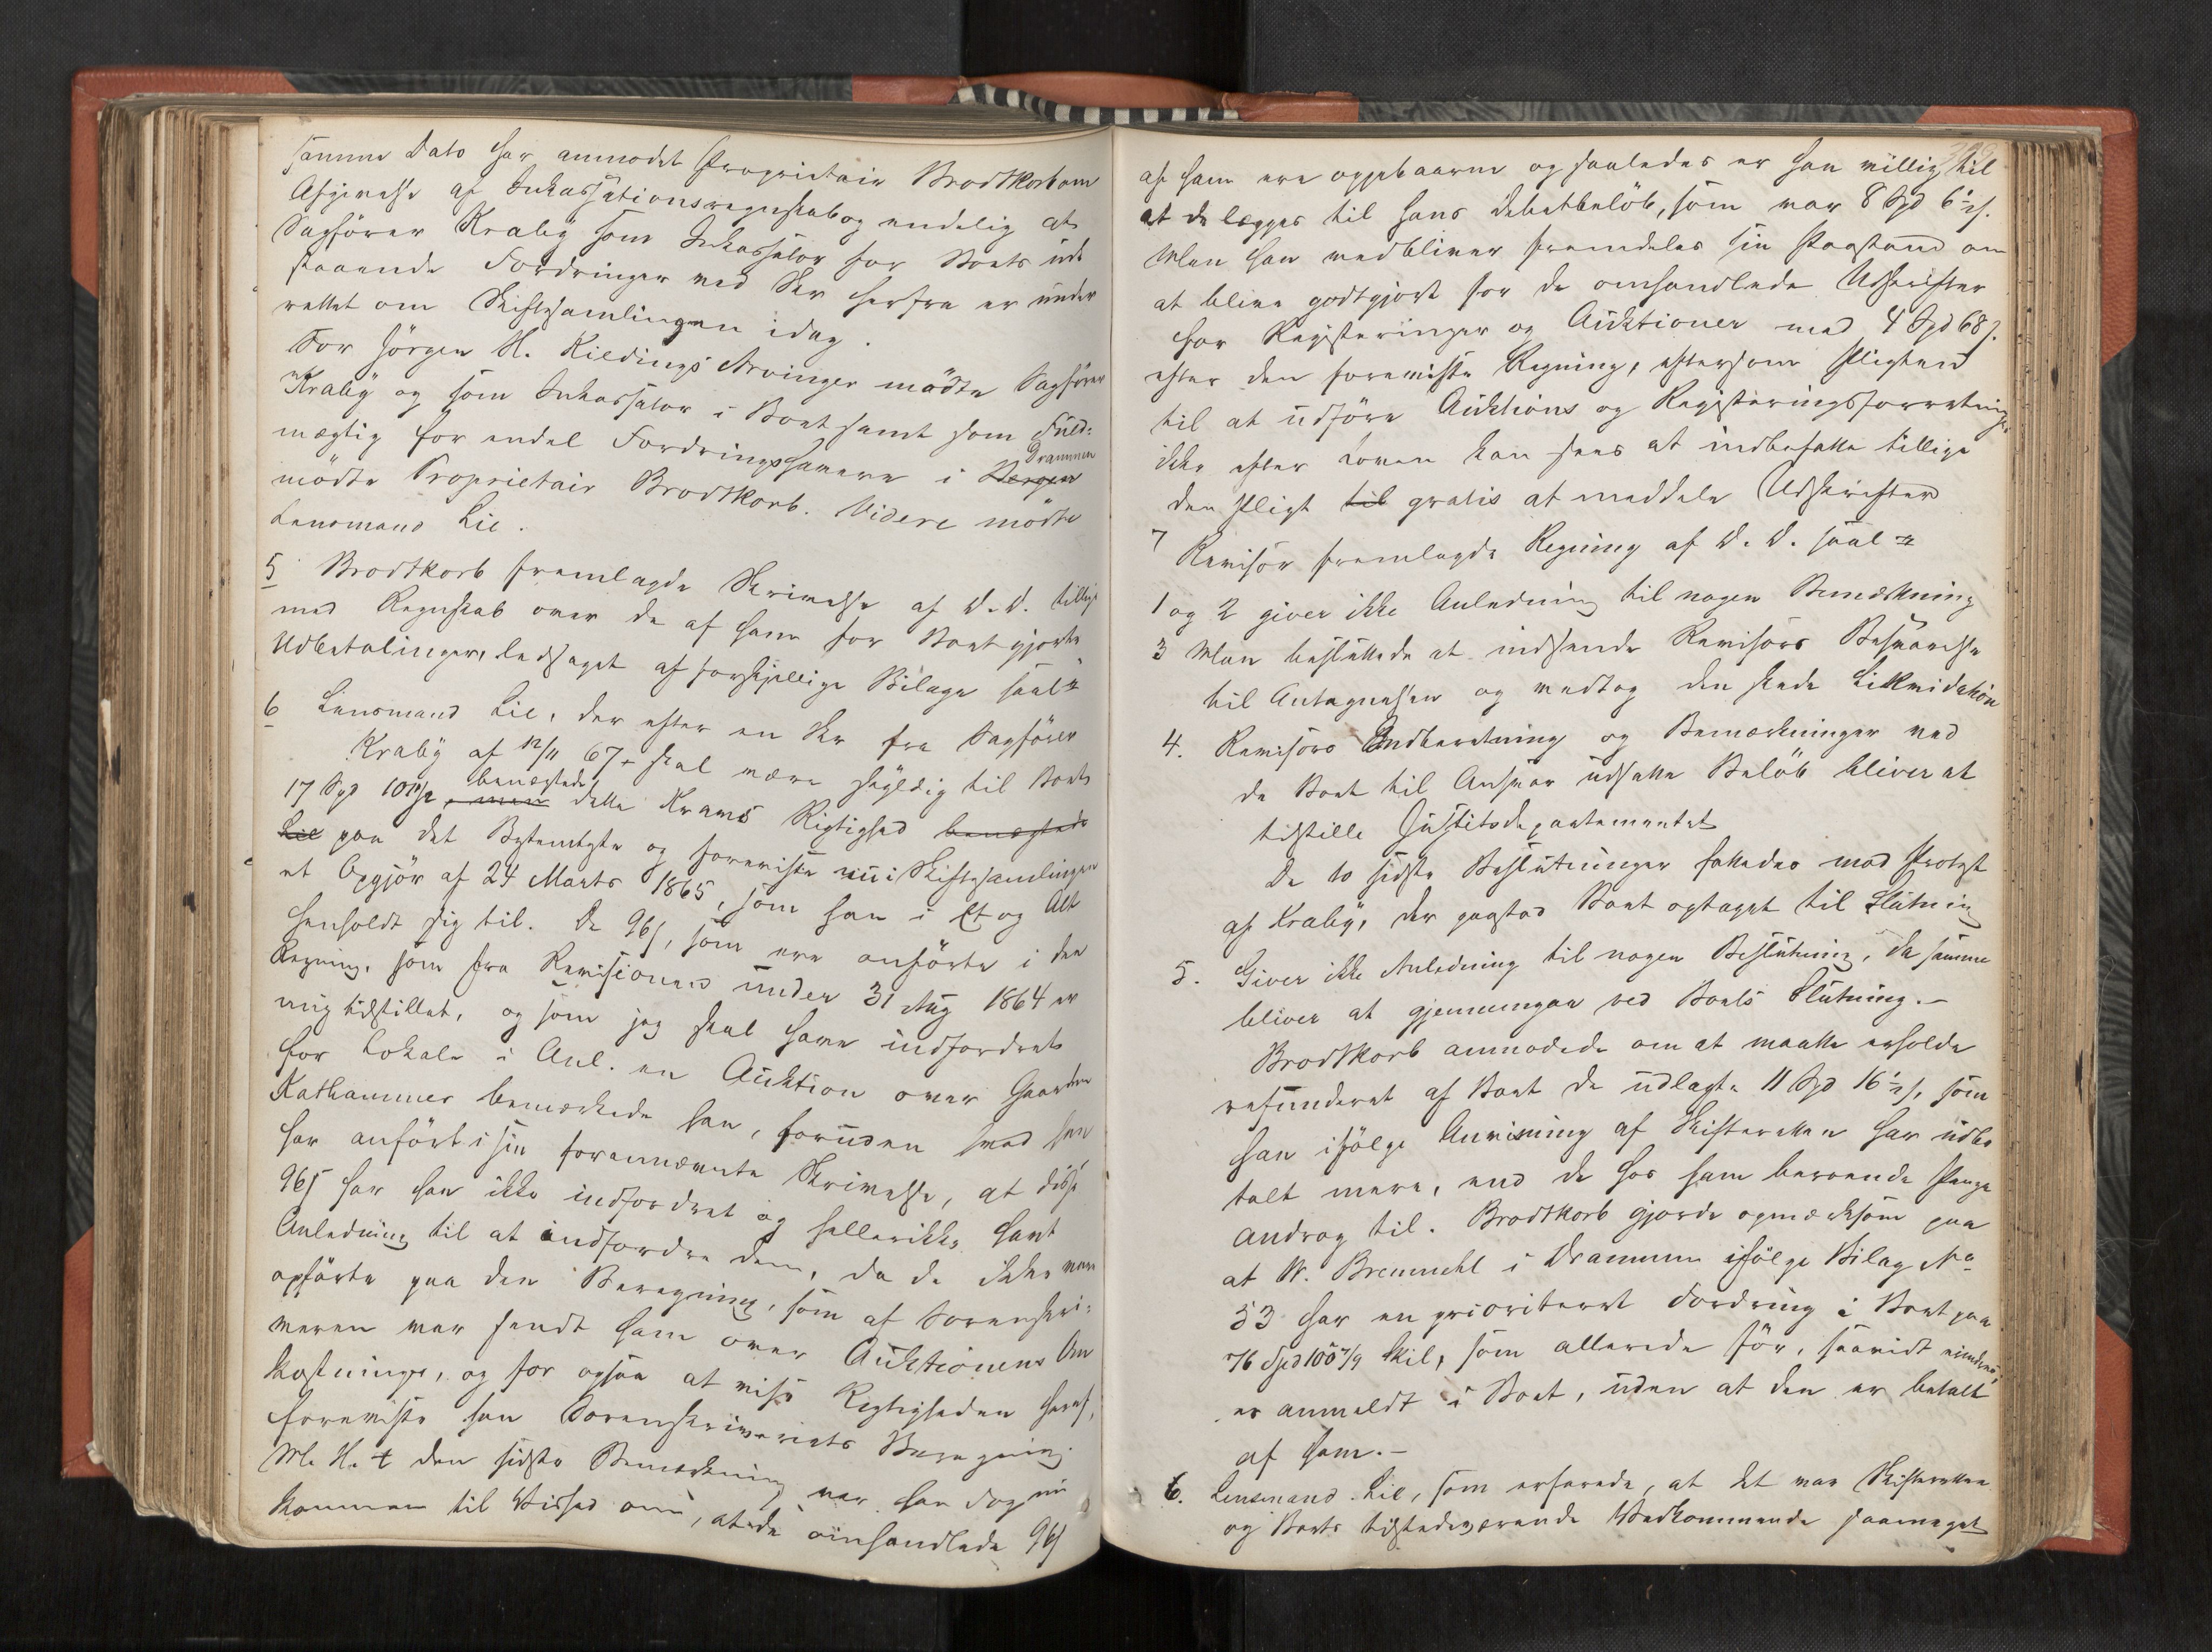 samme Dato har anmodet Proprietair Brodtkorb om
Afgivelse af Inkassationsregnskab og endelig at
Sagfører Kraby som Inkassator for Boets ude
staaende Fordringer ved Skr herfra er under
rettet om Skiftesamlingen idag.
For Jörgen H. Kildings Arvinger mödte Sagförer
Kraby og som Inkassator i Boet samt som Fuld-
mægtig for endel Fordringshavere i Bergen Drammen
mödte Proprietair Brodtkorb. Videre mödte
Lensmand Lie.
5 Brodtkorb fremlagde Skrivelse af D. D. tillige
med Regnskab over de af ham for Boet gjorte
Udbetalinger, ledsaget af forskjellige Bilage saal
6 Lensmand Lie, der efter en Skr fra Sagförer
Kraby af 12/11 67 skal være skyldig til Boet
17 Spd 101 men benægtede dette Kravs Rigtighed benægtede
Lie paa det Bestemteste og foreviste nu i Skiftesamlingen
et Opgjör af 24 Marts 1865, som han i Et og Alt
henholdt sig til. De 96 s, som ere anförte i den
Regning, som fra Revisionen under 31 Aug 1864 er
mig tilstillet, og som jeg skal have indfordret
for Lokale i Anl. en Auktion over Gaarden
Kathammer bemærkede han, foruden hvad han
har anfört i sin forannævnte Skrivelse, at disse
96 s har han ikke indfordret og hellerikke havt
Anledning til at indfordre dem, da de ikke var
opförte paa den Beregning, som af Sorenskri-
veren var sendt ham over Auktionens Om
kostninger, og for ogsaa at vise Rigtigheden heraf,
foreviste han Sorenskriveriets Beregning.
M. H. t den sidste Bemærkning var han dog nu
kommen til Vished om, at de omhandlede 96 s
af ham ere oppebaarne og saaledes er han villig til
at de lægges til hans Debetbelöb, som var 8 Spd 6½ s.
Men han vedbliver fremdeles sin Paastand om
at blive godtgjort for de omhandlede Udskrifter
for Registeringer og Auktioner med 4 Spd 68 s.
efter den foreviste Regning, eftersom Pligten
til at udföre Auktions og Registeringsforretninger
ikke efter Loven kan sees at indbefatte tillige
den Pligt til gratis at meddele Udskrifter
7 Revisor fremlagde Regning af D. D. saal
1 og 2 giver ikke Anledning til nogen Bemærkning
3 Man besluttede at indsende Revisors Besvarelse
til Antagnelsen og vedtog den skede Likvidation
4. Revisors Indberetning og Bemærkninger ved
de Boet til Ansvar udsatte Belöb bliver at
tilstille Justitsdepartementet
De to sidste Beslutninger fattedes mod Protest
af Kraby, der paastod Boet optaget til Slutning
5. Giver ikke Anledning til nogen Beslutning, da samme
bliver at gjennemgaa ved Boets Slutning.-
Brodtkorb anmodede om at maatte erholde
refunderet af Boet de udlagte 11 Spd 16½ s, som
han ifölge Anvisning af Skifteretten har udbe
talt mere, end de hos ham beroende Penge
androg til. Brodtkorb gjorde opmærksom paa
at W. Bremmehl i Drammen ifölge Bilag No
53 har en prioriteret Fordring i Boet paa
76 Spd 100 4/9 Skil, som allerede för, saavidt mindes,
er anmeldt i Boet, uden at den er betalt
af ham.-
6. Lensmand Lie, som erfarede, at det var Skifteretten
og Boets tilstedeværende Vedkommende saameget